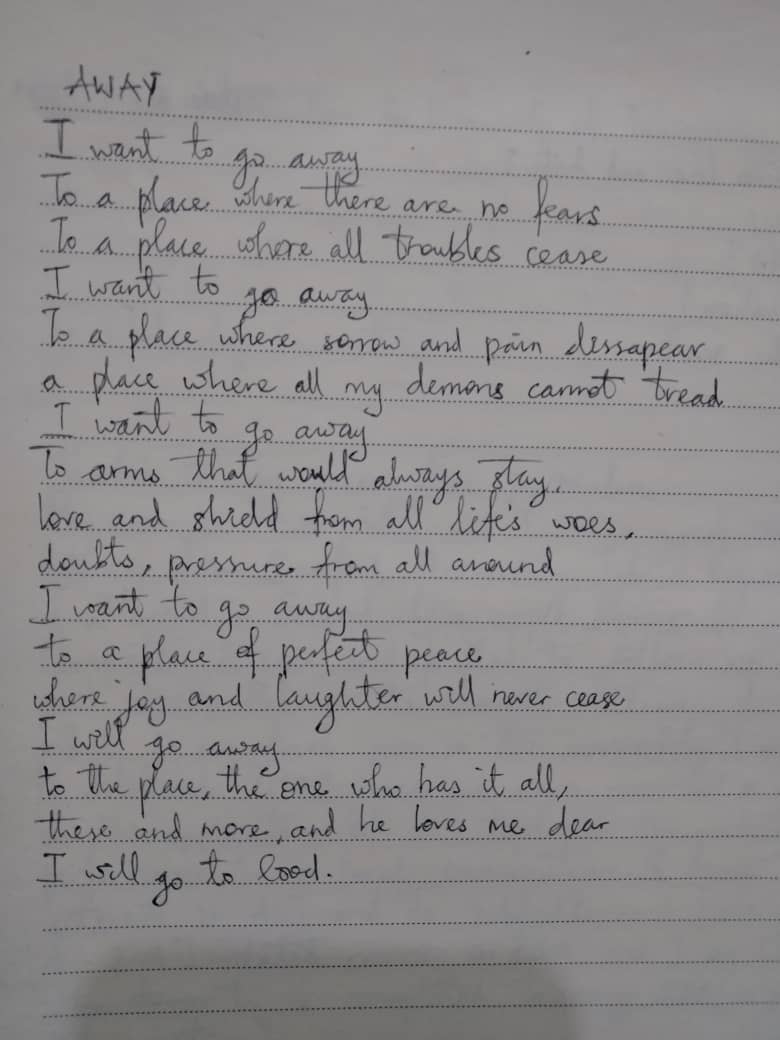 AWAY
I want to go away
To a place where there are no fears
To a place where all troubles cease
I want to go away
To a place where sorrow and pain dissapear
a place where all my demons cannot tread
I want to go away
To arms that would always stay,
love and shield from all life's woes,
doubts, pressure from all around
I want to go away
to a place of perfect peace
where joy and laughter will never cease
I will go away
to the place, the one who has it all,
these and more, and he loves me dear
I will go to